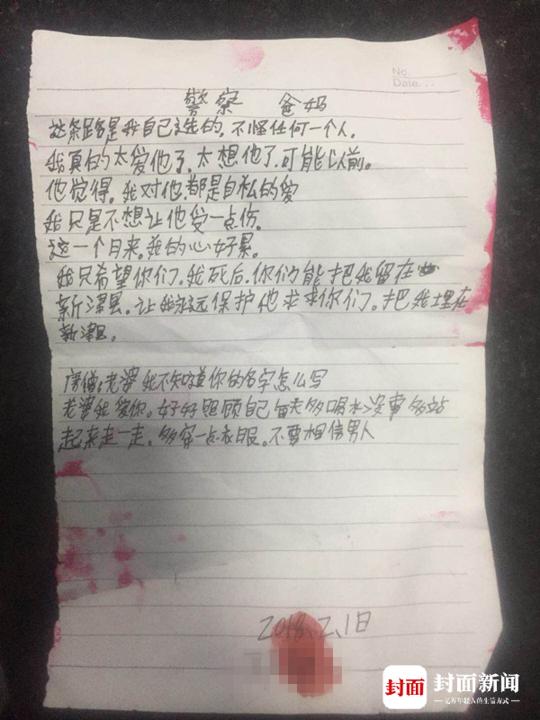 No.
Date
警察 爸妈
这条路是我自己选的,不怪任何一个人.
我真的太爱他了,太想他了,可能以前。
他觉得,我对他都是自私的爱
我只是不想让他受一点伤。
这一个月来,我的心好累。
我只希望你们,我死后,你们能把我留在
新津县,让我永远保护他求求你们,把我埋在
新津县。
老婆我不知道你的名字怎么写
老婆我爱你。好好照顾自己每天多喝水没事多站
起来走一走,多穿一点衣服。不要相信男人
2018.2.1日
封面 封面新闻
亿万年轻人的生活方式